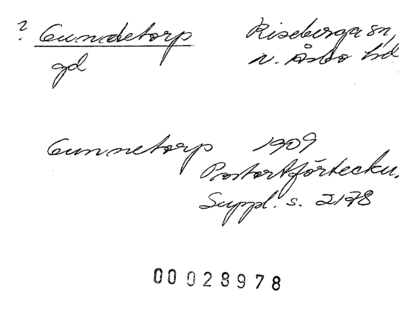 ? Gundetorp Riseberga sn,
gd N. Åsbo hd
Gunnetorp 1909
Postortförteckn.
Suppl. s. 2178
00 028978